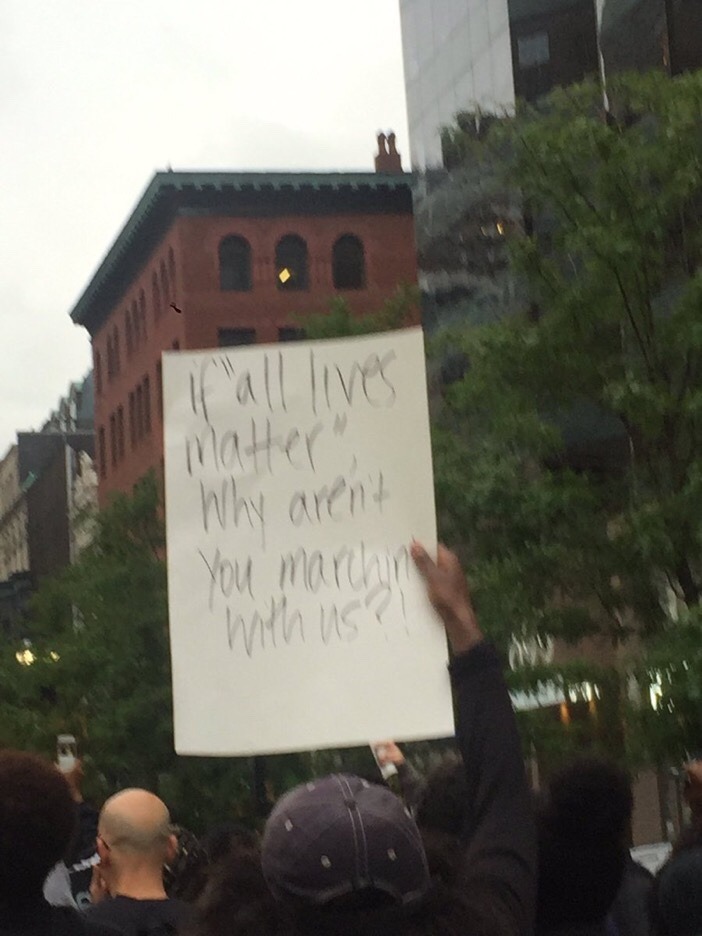 if "all lives
matter",
Why aren't
you marchin
with us?!